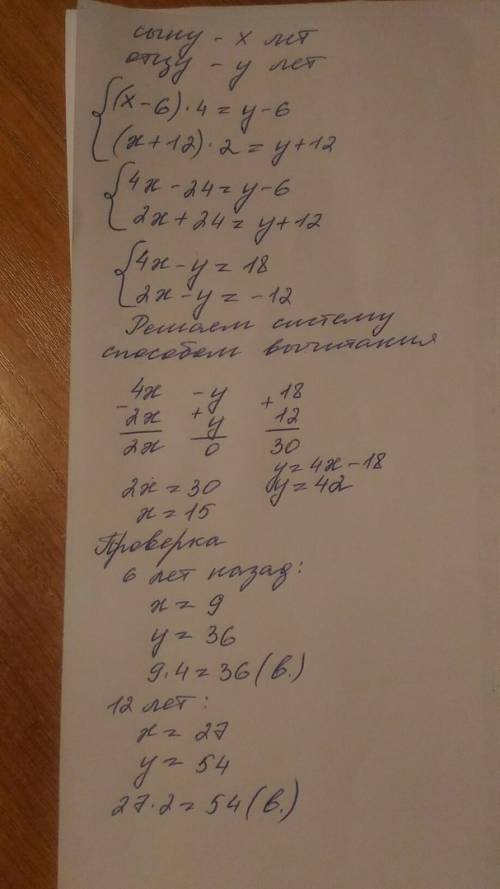 сыну - х лет
отцу - у лет
(х-6)·4=у-6
(х+12)·2=у+12
4х-24=у-6
2х+24=у+12
4х-у=18
2х-у=-12
Решаем систему
способом вычитания
4х -у +18
- 2х + у 12
2х 0 30
у=4х-18
2х=30 у=42
х=15
Проверка
6 лет назад:
х=9
у=36
9·4=36(в.)
12 лет:
х=27
у=54
27·2=54(в.)